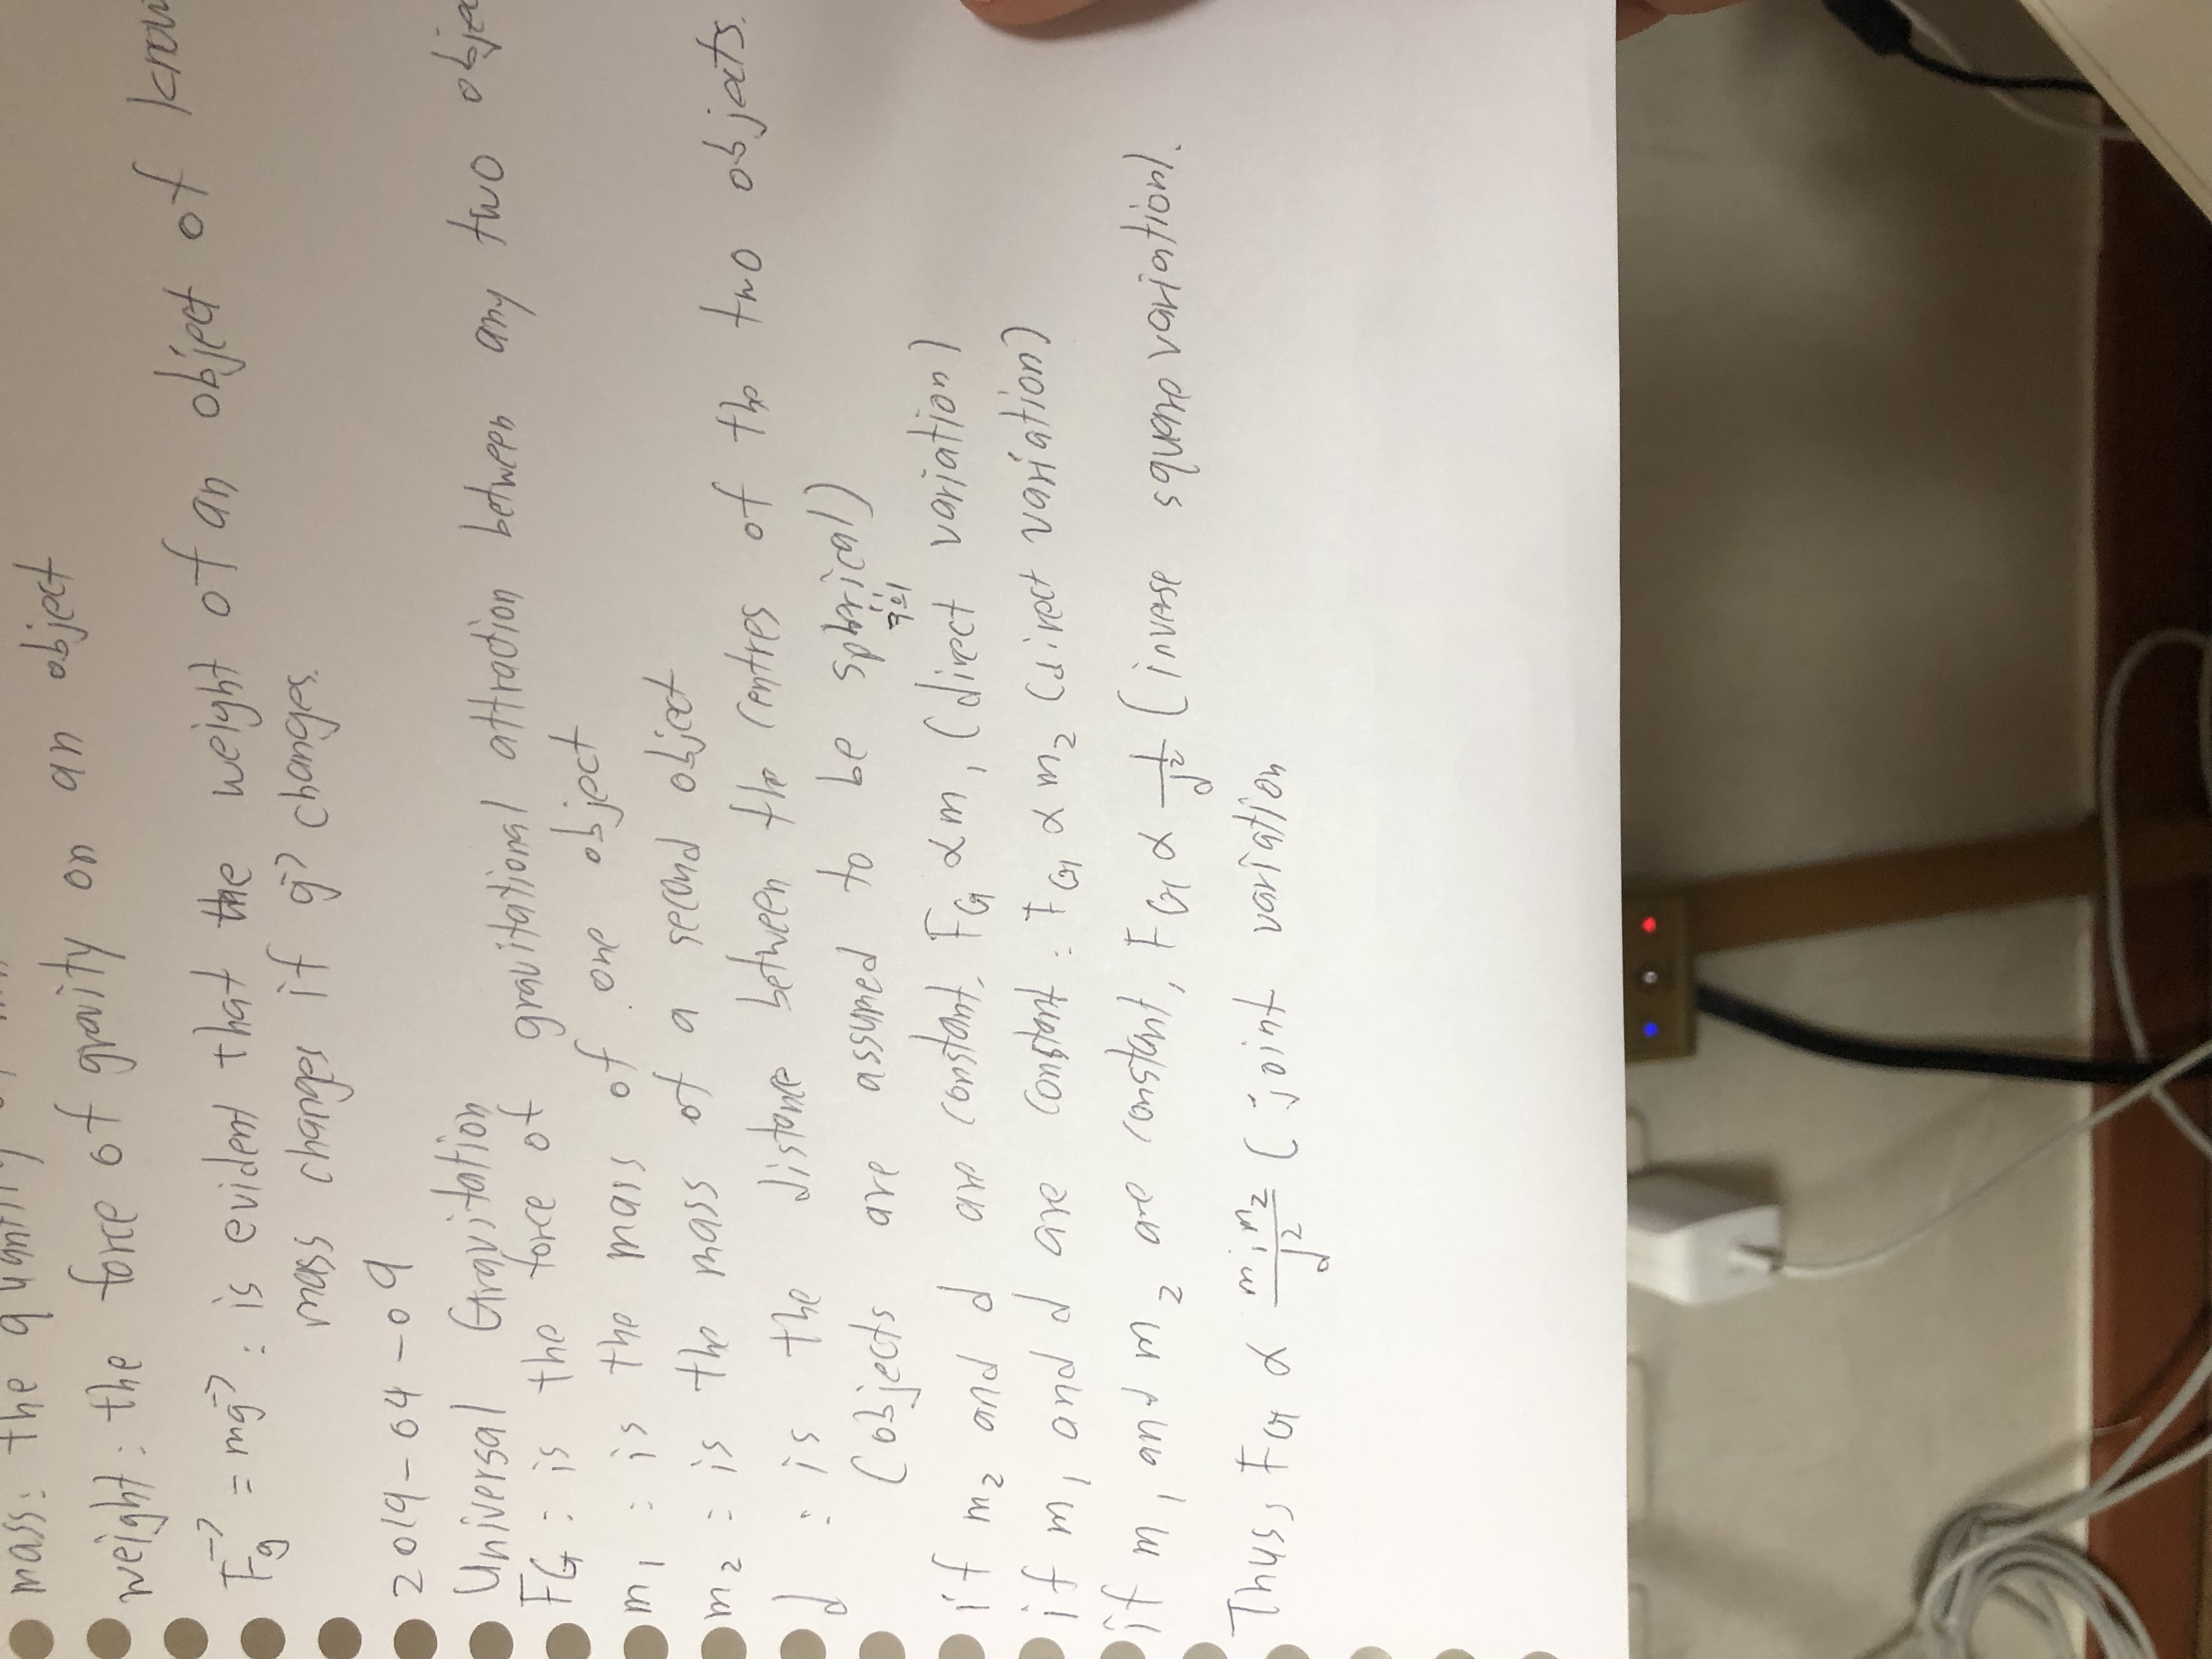 mass: the quantity of
weight: the force of gravity on an object
F⃗g = mg⃗ : is evident that the weight of an object of know
mass changes if g⃗ changes.
2019-04-09
Universal Gravitation
FG: is the force of gravitational attraction between any two obje
m₁ : is the mass of one object
m₂ : is the mass of a second object
d : is the distance between the centres of the two objects.
(objects are assumed to be spherical)
if m₂ and d are constant, FG ∝ m₁ (direct variation)
if m₁ and d are constant : FG ∝ m₂ (direct variation)
if m₁ and m₂ are constant, FG ∝ 1/d² (inverse square variation).
Thus, FG ∝ m₁m₂/d² (joint variation